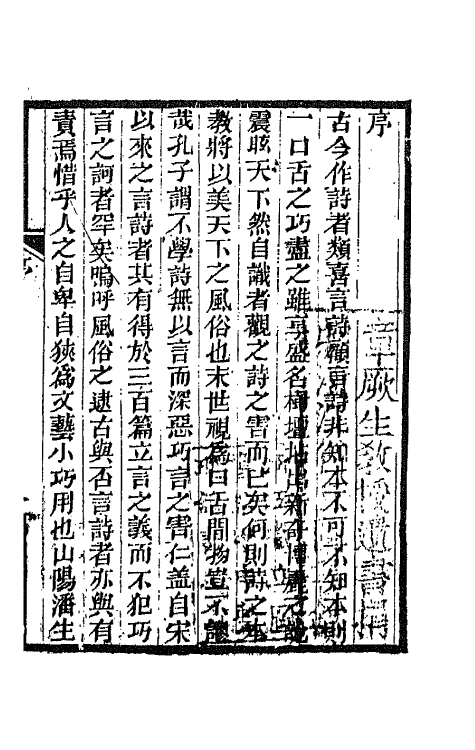 序
古今作詩者類喜言詩顧言詩非知本不可不知本則
一口舌之巧盡之雖享盛名樹壇坫出新奇博麗之說
震眩天下然自識者觀之詩之害而已矣何則詩之本
教將以美天下之風俗也末世視為口舌間物豈不謬
哉孔子謂不學詩無以言而深惡巧言之害仁蓋自宋
以來之言詩者其有得於三百篇立言之義而不犯巧
言之訶者罕矣嗚呼風俗之逮古與否言詩者亦與有
責焉惜乎人之自卑自狹為文藝小巧用也山陽潘生
章厥生教授遺書
序